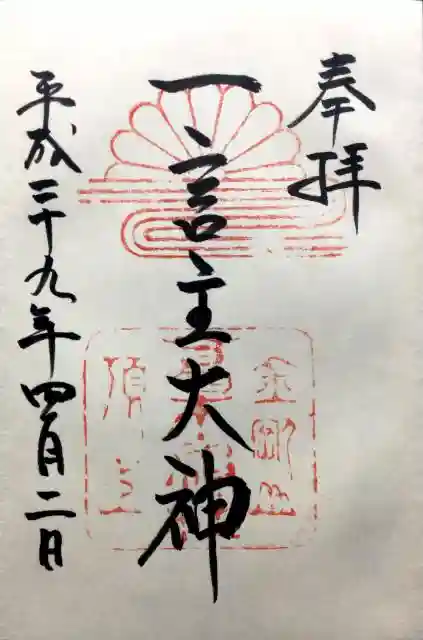 奉拝
一言主大神
平成二十九年四月二日
金剛山
頂上